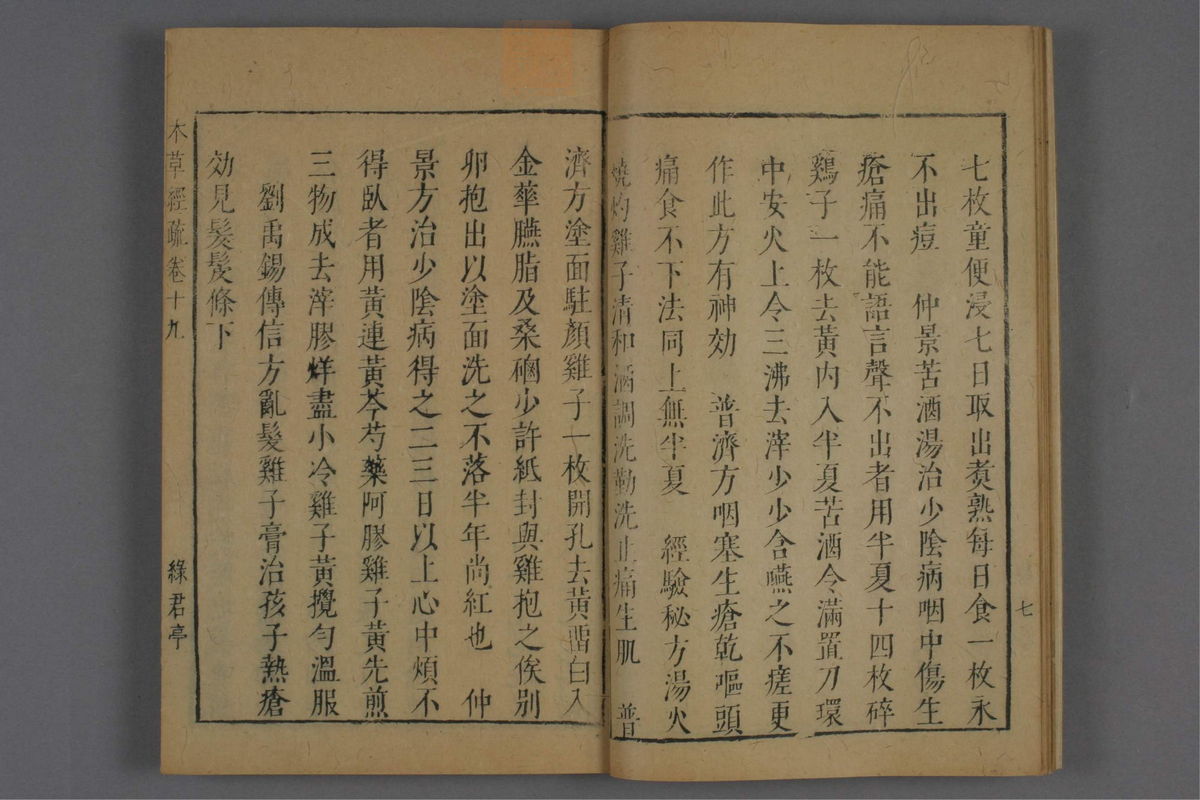 七枚童便浸七日取出煑熟每日食一枚永
不出痘　仲景苦酒湯治少陰病咽中傷生
瘡痛不能語言聲不出者用半夏十四枚碎
鷄子一枚去黃內入半夏苦酒令滿置刀環
中安火上令三沸去滓少少含嚥之不瘥更
作此方有神効　普濟方咽塞生瘡乾嘔頭
痛食不下法同上無半夏　經驗秘方湯火
燒灼雞子清和酒調洗勤洗止痛生肌　普
七
濟方塗面駐顏雞子一枚開孔去黃畱白入
金華臙脂及桑磠少許紙封與雞抱之俟別
卵抱出以塗面洗之不落半年尚紅也　仲
景方治少陰病得之二三日以上心中煩不
得臥者用黃連黃芩芍藥阿膠雞子黃先煎
三物成去滓膠烊盡小冷雞子黃攪勻溫服
劉禹錫傳信方亂髮雞子膏治孩子熱瘡
効見髮髲條下
本草經疏卷十九
綠君亭